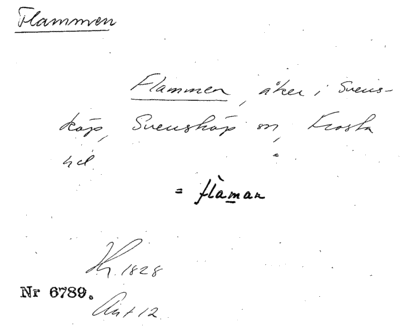 Flammen
Flammen, åker i Svens-
köp, Svensköp sn, Frosta
hd
= flàman
Kr. 1828
Nr 6789.
Ant 12